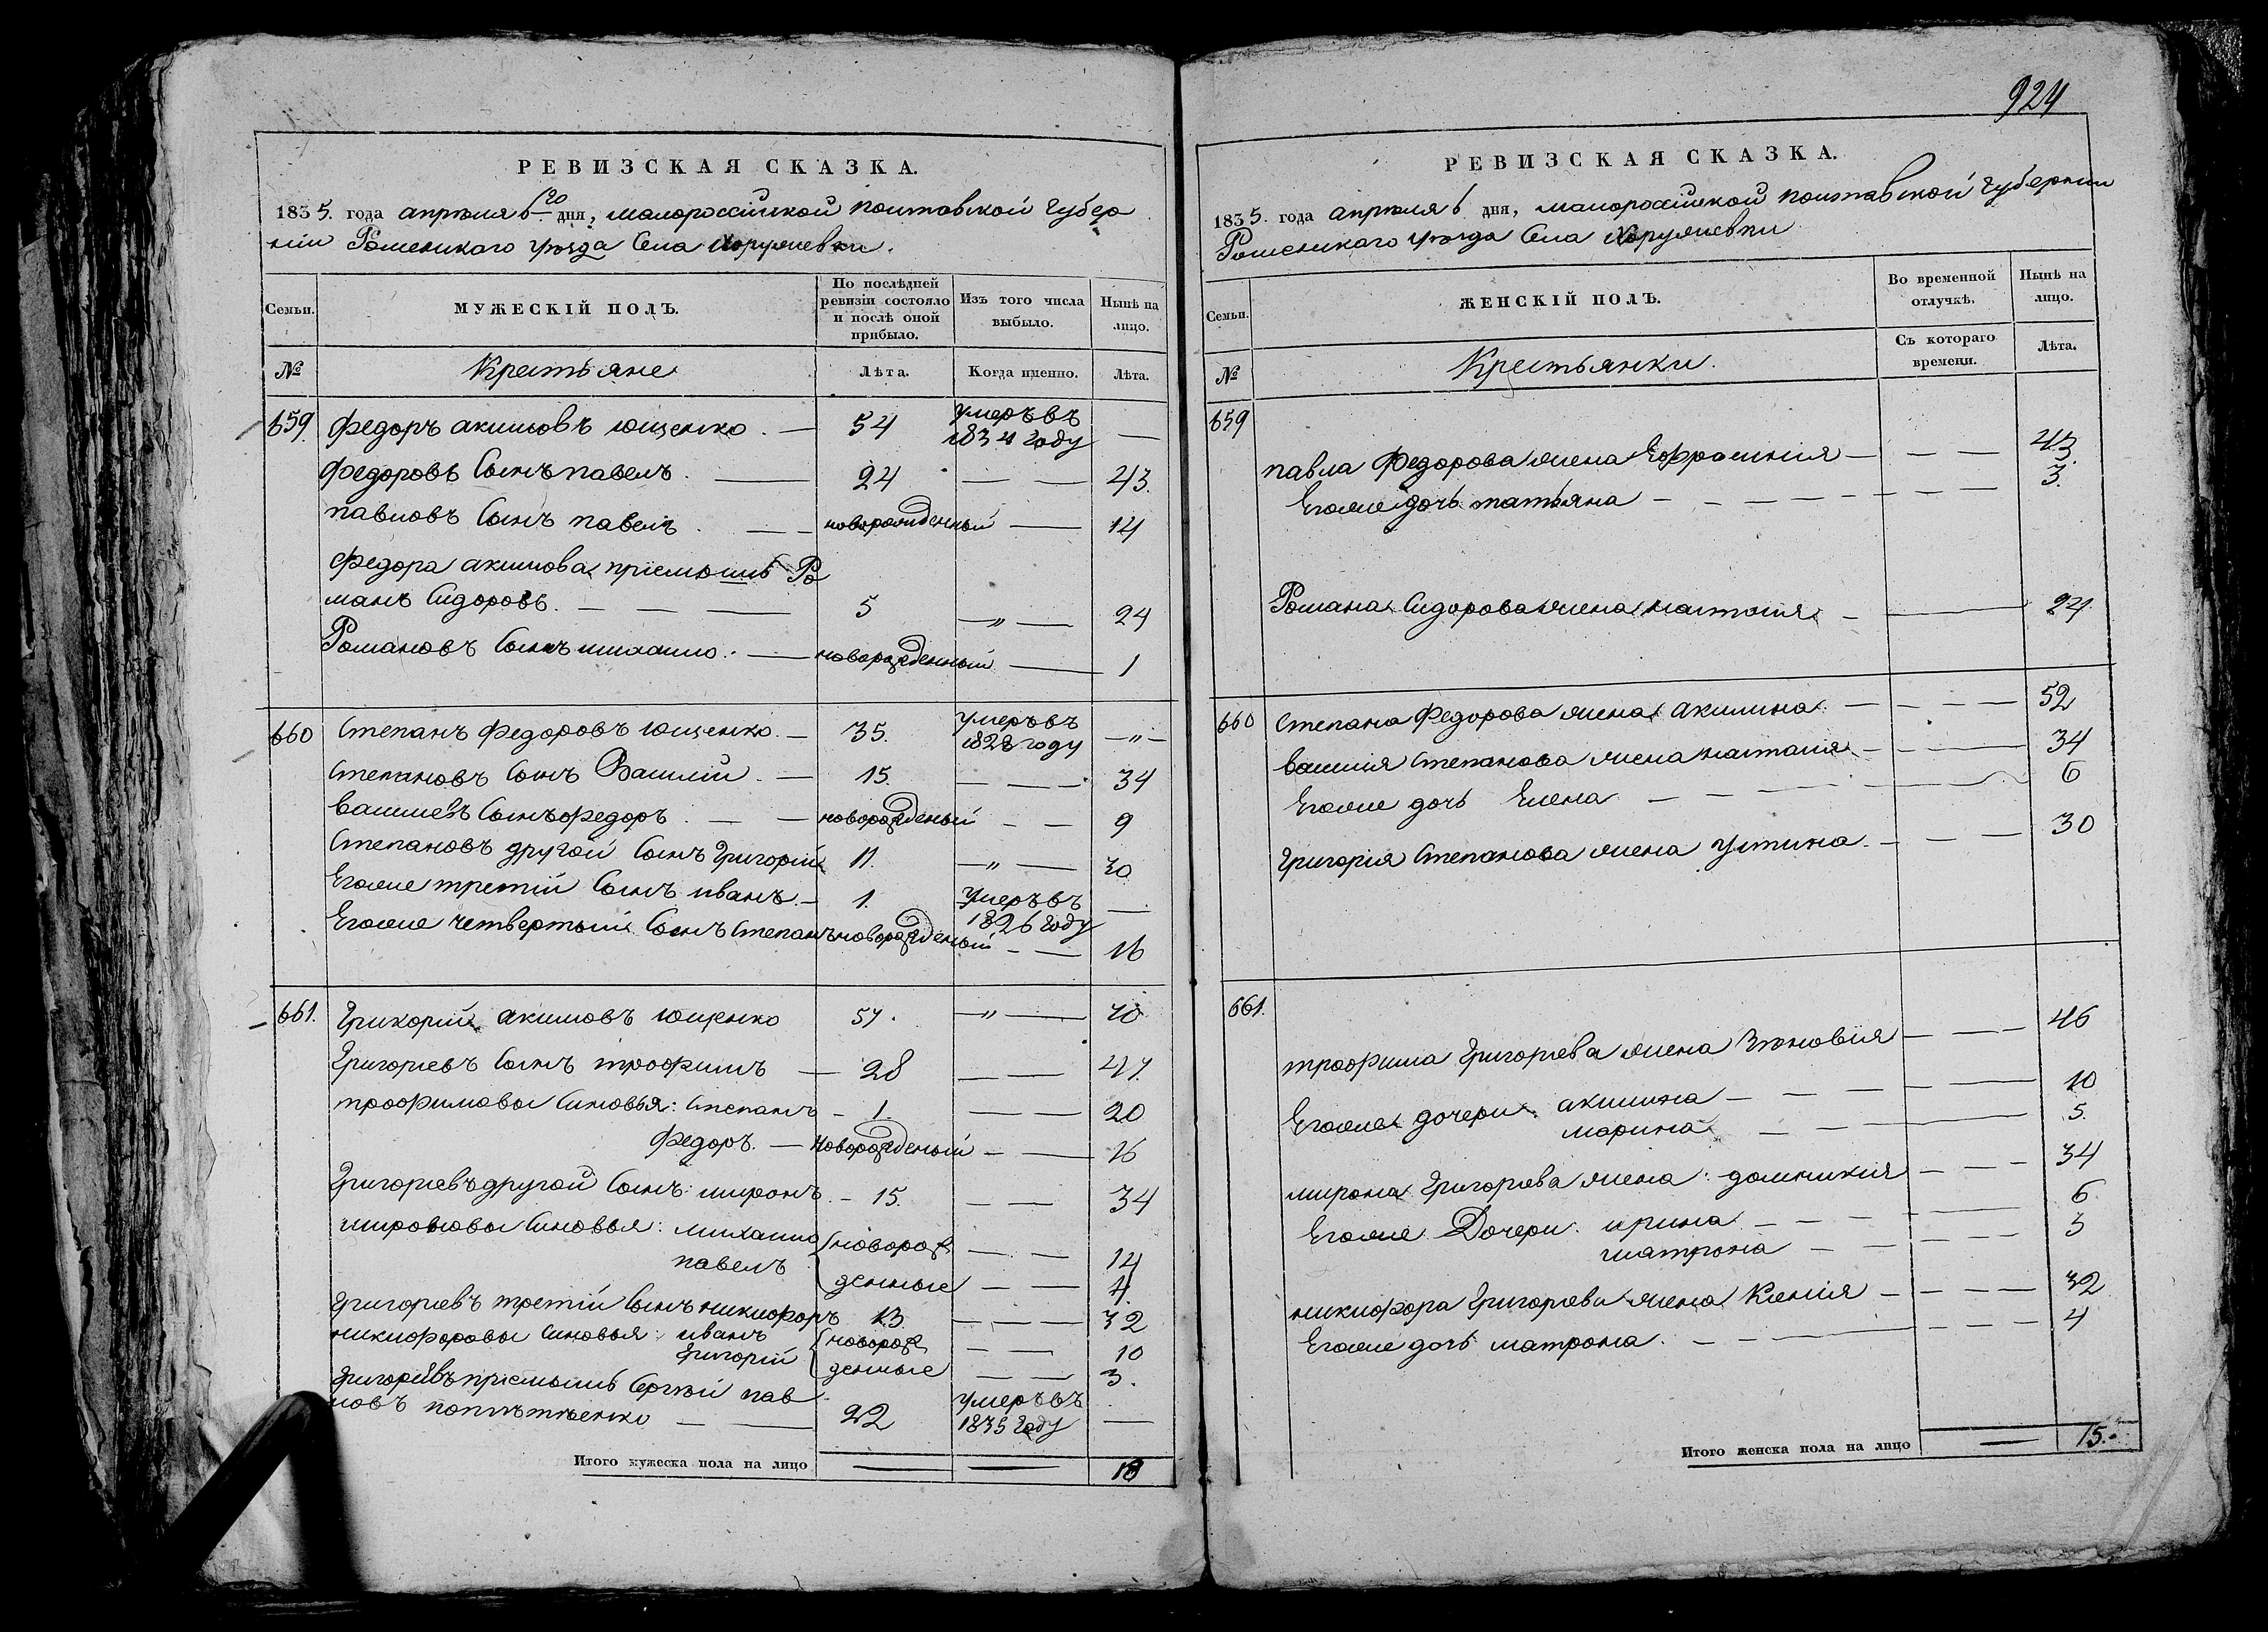 924
РЕВИЗСКАЯ СКАЗКА.
1835. года апрѣля 6го дня, малороссійской полтавской губер
ніи Роменскаго уѣзда Села Хоружевки.
Семьи. МУЖЕСКІЙ ПОЛЪ. По послѣдней ревизіи состояло и послѣ оной прибыло. Изъ того числа выбыло. Нынѣ на лицо.
№ Крестьяне Лѣта. Когда именно. Лѣта.
659. федоръ акимовъ ющенко. — 54 умеръ въ 1834 году —
федоровъ Сынъ павелъ. — 24 — — 43.
павловъ Сынъ павелъ. — — новорожденный — 14
федора акимова пріемышъ Ро
манъ Сидоровъ. — — — 5 —„— 24
Романовъ Сынъ михайло. — новорожденный — 1
660 Степанъ федоровъ ющенко. — 35. умеръ въ 1828 году —„—
Степановъ Сынъ Василій. — 15. — — 34
василиевъ Сынъ федоръ. — — новорожденый — — 9
Степановъ другой Сынъ Григорій 11. —„— 30
Егоже третій Сынъ иванъ. — 1. умеръ въ 1826 году —
Егоже четвертый Сынъ Степанъ новорожденый — — 16
661. Григорий акимовъ ющенко 51. —„— 70
Григориевъ Сынъ трофимъ — 28 — — 47.
трофимовы Синовья: Степанъ — 1. — — 20
федоръ. — новорожденый — — 16
Григориевъ другой Сынъ миронъ. — 15. — — 34
мироновы Синовья: михайло новорож — — 14
павелъ денные — — 4.
Григориевъ третій Сынъ никифоръ 13. — — 32
никифоровы Синовья: иванъ новорож — — 10
Григорій денные — — 3.
Григориевъ пріемышъ Сергѣй пав
ловъ — — 22 умеръ въ 1835 году —
Итого мужеска пола на лицо — — 18
РЕВИЗСКАЯ СКАЗКА.
1835. года апрѣля 6 дня, малороссійской полтавской губерніи
Роменскаго уѣзда Села Хоружевки
Семьи. ЖЕНСКІЙ ПОЛЪ. Во временной отлучкѣ. Нынѣ на лицо.
№ Крестьянки. Съ котораго времени. Лѣта.
659
павла Федорова жена Ефросинія — — — 43.
Егоже дочь татьяна — — — — 3.
Романа Сидорова жена настасия — — 24.
660 Степана Федорова жена акилина — — — — 52
василия Степанова жена настасия — — — 34
Егоже дочь Елена — — — 6
Григория Степанова жена устина. — — — 30
661.
трофима Григориева жена Зѣновия — — — 46
Егоже дочери акилина — — — — 10
марина — — — 5.
мирона Григориева жена домникия — — — 34
Егоже Дочери ирина — — — — 6.
матрона — — — — 3
никифора Григориева жена Ксенія — — — — 32
Егоже дочь матрона. — — — — 4
Итого женска пола на лицо — 15.